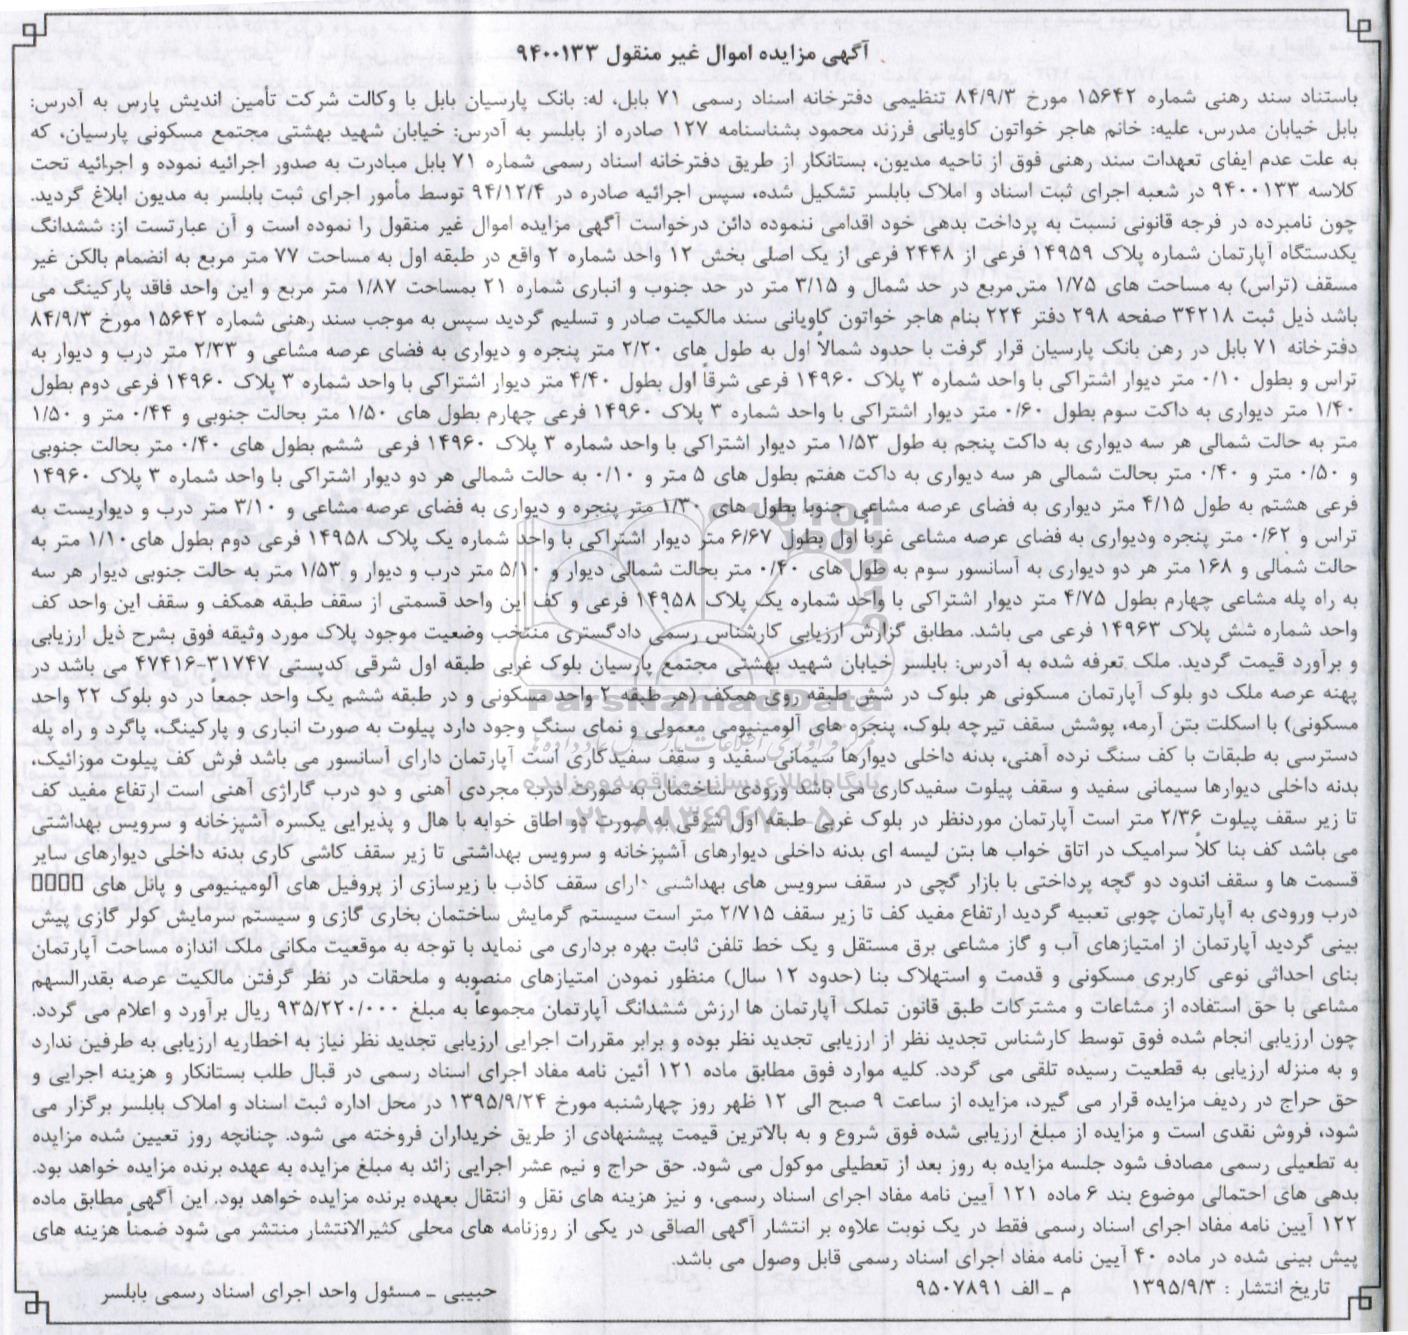 آگهی مزایده اموال غیر منقول ۹۴۰۰۱۳۳
باستناد سند رهنی شماره ۱۵۶۴۲ مورخ ۸۴/۹/۳ تنظیمی دفترخانه اسناد رسمی ۷۱ بابل، له: بانک پارسیان بابل با وکالت شرکت تأمین اندیش پارس به آدرس:
بابل خیابان مدرس، علیه: خانم هاجر خواتون کاویانی فرزند محمود بشناسنامه ۱۲۷ صادره از بابلسر به آدرس: خیابان شهید بهشتی مجتمع مسکونی پارسیان، که
به علت عدم ایفای تعهدات سند رهنی فوق از ناحیه مدیون، بستانکار از طریق دفترخانه اسناد رسمی شماره ۷۱ بابل مبادرت به صدور اجرائیه نموده و اجرائیه تحت
کلاسه ۹۴۰۰۱۳۳ در شعبه اجرای ثبت اسناد و املاک بابلسر تشکیل شده، سپس اجرائیه صادره در ۹۴/۱۲/۴ توسط مأمور اجرای ثبت بابلسر به مدیون ابلاغ گردید.
چون نامبرده در فرجه قانونی نسبت به پرداخت بدهی خود اقدامی ننموده دائن درخواست آگهی مزایده اموال غیر منقول را نموده است و آن عبارتست از: ششدانگ
یکدستگاه آپارتمان شماره پلاک ۱۴۹۵۹ فرعی از ۲۴۴۸ فرعی از یک اصلی بخش ۱۲ واحد شماره ۲ واقع در طبقه اول به مساحت ۷۷ متر مربع به انضمام بالکن غیر
مسقف (تراس) به مساحت های ۱/۷۵ متر مربع در حد شمال و ۳/۱۵ متر در حد جنوب و انباری شماره ۲۱ بمساحت ۱/۸۷ متر مربع و این واحد فاقد پارکینگ می
باشد ذیل ثبت ۳۴۲۱۸ صفحه ۲۹۸ دفتر ۲۲۴ بنام هاجر خواتون کاویانی سند مالکیت صادر و تسلیم گردید سپس به موجب سند رهنی شماره ۱۵۶۴۲ مورخ ۸۴/۹/۳
دفترخانه ۷۱ بابل در رهن بانک پارسیان قرار گرفت با حدود شمالاً اول به طول های ۲/۲۰ متر پنجره و دیواری به فضای عرصه مشاعی و ۲/۳۳ متر درب و دیوار به
تراس و بطول ۰/۱۰ متر دیوار اشتراکی با واحد شماره ۳ پلاک ۱۴۹۶۰ فرعی شرقاً اول بطول ۴/۴۰ متر دیوار اشتراکی با واحد شماره ۳ پلاک ۱۴۹۶۰ فرعی دوم بطول
۱/۴۰ متر دیواری به داکت سوم بطول ۰/۶۰ متر دیوار اشتراکی با واحد شماره ۳ پلاک ۱۴۹۶۰ فرعی چهارم بطول های ۱/۵۰ متر بحالت جنوبی و ۰/۴۴ متر و ۱/۵۰
متر به حالت شمالی هر سه دیواری به داکت پنجم به طول ۱/۵۳ متر دیوار اشتراکی با واحد شماره ۳ پلاک ۱۴۹۶۰ فرعی ششم بطول های ۰/۴۰ متر بحالت جنوبی
و ۰/۵۰ متر و ۰/۴۰ متر بحالت شمالی هر سه دیواری به داکت هفتم بطول های ۵ متر و ۰/۱۰ به حالت شمالی هر دو دیوار اشتراکی با واحد شماره ۳ پلاک ۱۴۹۶۰
فرعی هشتم به طول ۴/۱۵ متر دیواری به فضای عرصه مشاعی جنوبا بطول های ۱/۳۰ متر پنجره و دیواری به فضای عرصه مشاعی و ۳/۱۰ متر درب و دیواریست به
تراس و ۰/۶۲ متر پنجره ودیواری به فضای عرصه مشاعی غرباً اول بطول ۶/۶۷ متر دیوار اشتراکی با واحد شماره یک پلاک ۱۴۹۵۸ فرعی دوم بطول های۱/۱۰ متر به
حالت شمالی و ۱۶۸ متر هر دو دیواری به آسانسور سوم به طول های ۰/۴۰ متر بحالت شمالی دیوار و ۵/۱۰ متر درب و دیوار و ۱/۵۳ متر به حالت جنوبی دیوار هر سه
به راه پله مشاعی چهارم بطول ۴/۷۵ متر دیوار اشتراکی با واحد شماره یک پلاک ۱۴۹۵۸ فرعی و کف این واحد قسمتی از سقف طبقه همکف و سقف این واحد کف
واحد شماره شش پلاک ۱۴۹۶۳ فرعی می باشد. مطابق گزارش ارزیابی کارشناس رسمی دادگستری منتخب وضعیت موجود پلاک مورد وثیقه فوق بشرح ذیل ارزیابی
و برآورد قیمت گردید. ملک تعرفه شده به آدرس: بابلسر خیابان شهید بهشتی مجتمع پارسیان بلوک غربی طبقه اول شرقی کدپستی ۳۱۷۴۷-۴۷۴۱۶ می باشد در
پهنه عرصه ملک دو بلوک آپارتمان مسکونی هر بلوک در شش طبقه روی همکف (هر طبقه ۲ واحد مسکونی و در طبقه ششم یک واحد جمعا در دو بلوک ۲۲ واحد
مسکونی) با اسکلت بتن آرمه، پوشش سقف تیرچه بلوک، پنجره های آلومینیومی معمولی و نمای سنگ وجود دارد پیلوت به صورت انباری و پارکینگ، پاگرد و راه پله
دسترسی به طبقات با کف سنگ نرده آهنی، بدنه داخلی دیوارها سیمانی سفید و سقف سفیدکاری است آپارتمان دارای آسانسور می باشد فرش کف پیلوت موزائیک،
بدنه داخلی دیوارها سیمانی سفید و سقف پیلوت سفیدکاری می باشد ورودی ساختمان به صورت درب مجردی آهنی و دو درب گاراژی آهنی است ارتفاع مفید کف
تا زیر سقف پیلوت ۲/۳۶ متر است آپارتمان موردنظر در بلوک غربی طبقه اول شرقی به صورت دو اطاق خوابه با هال و پذیرایی یکسره آشپزخانه و سرویس بهداشتی
می باشد کف بنا کلاً سرامیک در اتاق خواب ها بتن لیسه ای بدنه داخلی دیوارهای آشپزخانه و سرویس بهداشتی تا زیر سقف کاشی کاری بدنه داخلی دیوارهای سایر
قسمت ها و سقف اندود دو گچه پرداختی با بازار گچی در سقف سرویس های بهداشتی دارای سقف کاذب با زیرسازی از پروفیل های آلومینیومی و پانل های □□□□
درب ورودی به آپارتمان چوبی تعبیه گردید ارتفاع مفید کف تا زیر سقف ۲/۷۱۵ متر است سیستم گرمایش ساختمان بخاری گازی و سیستم سرمایش کولر گازی پیش
بینی گردید آپارتمان از امتیازهای آب و گاز مشاعی برق مستقل و یک خط تلفن ثابت بهره برداری می نماید با توجه به موقعیت مکانی ملک اندازه مساحت آپارتمان
بنای احداثی نوعی کاربری مسکونی و قدمت و استهلاک بنا (حدود ۱۲ سال) منظور نمودن امتیازهای منصوبه و ملحقات در نظر گرفتن مالکیت عرصه بقدرالسهم
مشاعی با حق استفاده از مشاعات و مشترکات طبق قانون تملک آپارتمان ها ارزش ششدانگ آپارتمان مجموعاً به مبلغ ۹۳۵/۲۲۰/۰۰۰ ریال برآورد و اعلام می گردد.
چون ارزیابی انجام شده فوق توسط کارشناس تجدید نظر از ارزیابی تجدید نظر بوده و برابر مقررات اجرایی ارزیابی تجدید نظر نیاز به اخطاریه ارزیابی به طرفین ندارد
و به منزله ارزیابی به قطعیت رسیده تلقی می گردد. کلیه موارد فوق مطابق ماده ۱۲۱ آئین نامه مفاد اجرای اسناد رسمی در قبال طلب بستانکار و هزینه اجرایی و
حق حراج در ردیف مزایده قرار می گیرد، مزایده از ساعت ۹ صبح الی ۱۲ ظهر روز چهارشنبه مورخ ۱۳۹۵/۹/۲۴ در محل اداره ثبت اسناد و املاک بابلسر برگزار می
شود، فروش نقدی است و مزایده از مبلغ ارزیابی شده فوق شروع و به بالاترین قیمت پیشنهادی از طریق خریداران فروخته می شود. چنانچه روز تعیین شده مزایده
به تطعیلی رسمی مصادف شود جلسه مزایده به روز بعد از تعطیلی موکول می شود. حق حراج و نیم عشر اجرایی زائد به مبلغ مزایده به عهده برنده مزایده خواهد بود.
بدهی های احتمالی موضوع بند ۶ ماده ۱۲۱ آیین نامه مفاد اجرای اسناد رسمی، و نیز هزینه های نقل و انتقال بعهده برنده مزایده خواهد بود. این آگهی مطابق ماده
۱۲۲ آیین نامه مفاد اجرای اسناد رسمی فقط در یک نوبت علاوه بر انتشار آگهی الصاقی در یکی از روزنامه های محلی کثیرالانتشار منتشر می شود ضمناً هزینه های
پیش بینی شده در ماده ۴۰ آیین نامه مفاد اجرای اسناد رسمی قابل وصول می باشد.
تاریخ انتشار : ۱۳۹۵/۹/۳ م ـ الف ۹۵۰۷۸۹۱ حبیبی ـ مسئول واحد اجرای اسناد رسمی بابلسر
ParsNamadData